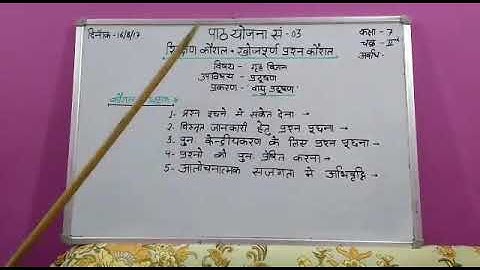 दिनांक -16/8/17
पाठ योजना सं - 03
कक्षा - 7
शिक्षण कौशल - खोजपूर्ण प्रश्न कौशल
चक्र - II
अवधि -
विषय - गृह विज्ञान
उपविषय - प्रदूषण
प्रकरण - 'वायु प्रदूषण'
कौशल
1- प्रश्न पूछने में संकेत देना →
2- विस्तृत जानकारी हेतु प्रश्न पूछना →
3- पुन: केन्द्रीयकरण के लिए प्रश्न पूछना →
4- प्रश्नो को पुन: प्रेषित करना →
5- आलोचनात्मक सजगता में अभिवृद्धि →